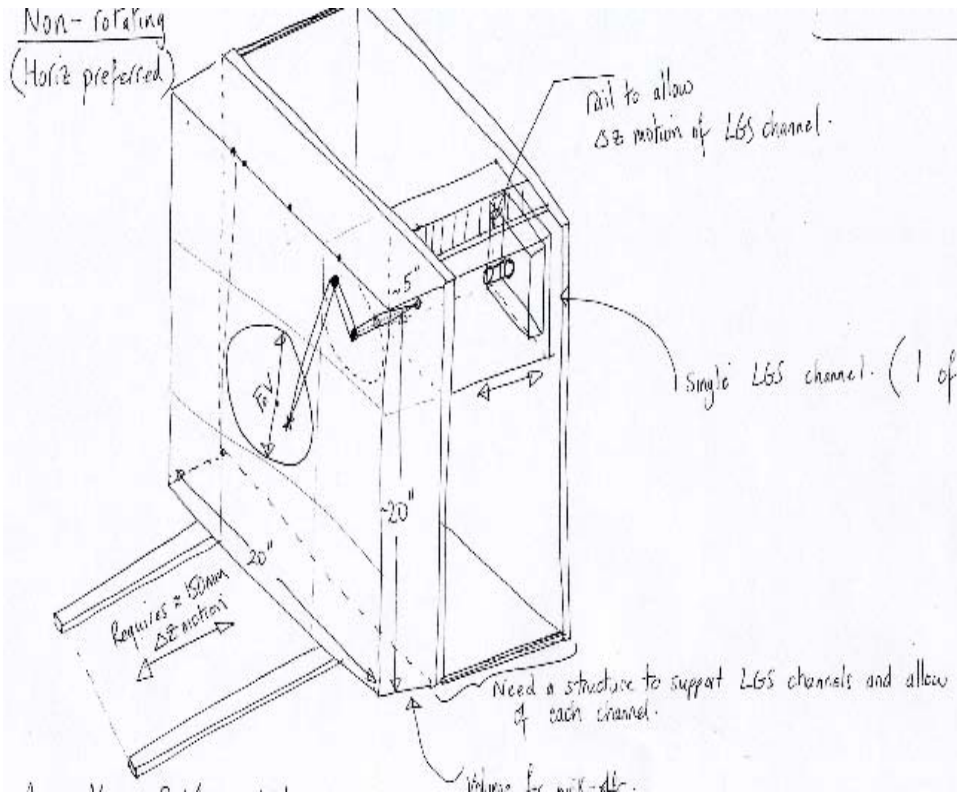 Non-rotating
(Horiz preferred)
rail to allow
Δz motion of LGS channel.
~5"
FoV
Single LGS channel. (1 of
~20"
20"
Requires ≈150mm
Δz motion
Need a structure to support LGS channels and allow
of each channel.
Volume for pick-offs.